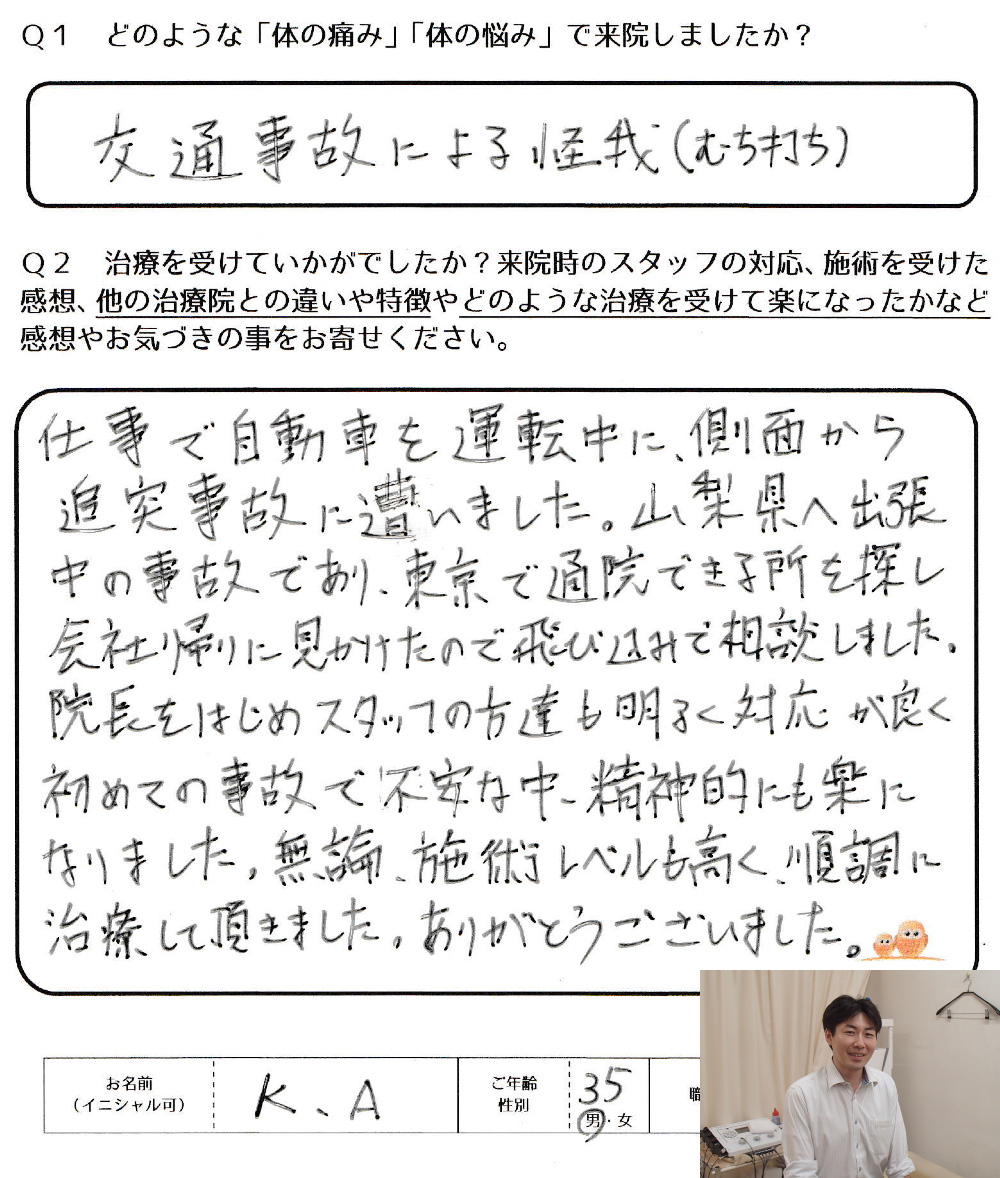 Q1 どのような「体の痛み」「体の悩み」で来院しましたか?
交通事故による怪我(むち打ち)
Q2 治療を受けていかがでしたか?来院時のスタッフの対応、施術を受けた
感想、他の治療院との違いや特徴やどのような治療を受けて楽になったかなど
感想やお気づきの事をお寄せください。
仕事で自動車を運転中に、側面から
追突事故に遭いました。山梨県へ出張
中の事故であり、東京で通院できる所を探し
会社帰りに見かけたので飛び込みで相談しました。
院長をはじめスタッフの方達も明るく対応が良く
初めての事故で不安な中、精神的にも楽に
なりました。無論、施術レベルも高く、順調に
治療して頂きました。ありがとうございました。
お名前
(イニシャル可)
K、A
ご年齢
性別
35
男・女
職